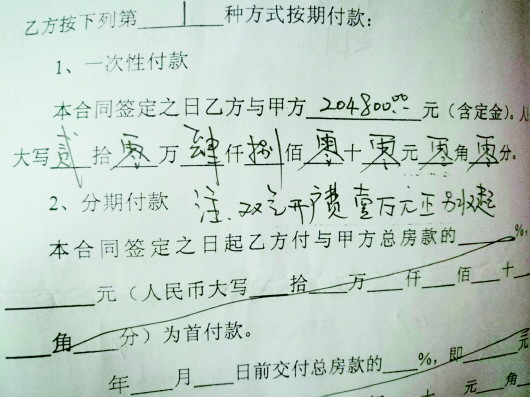 乙方按下列第 1 种方式按期付款:
1、一次性付款
本合同签定之日乙方与甲方 204800.00 元(含定金)。人
大写 贰 拾 零 万 肆 仟 捌 佰 零 十 零 元 零 角 零 分。
2、分期付款 注.双气开户费壹万元正另收
本合同签定之日起乙方付与甲方总房款的____%,
____元(人民币大写____拾____万____仟____佰____十
____角____分)为首付款。
____年____月____日前交付总房款的____%,即____元
十____元____角